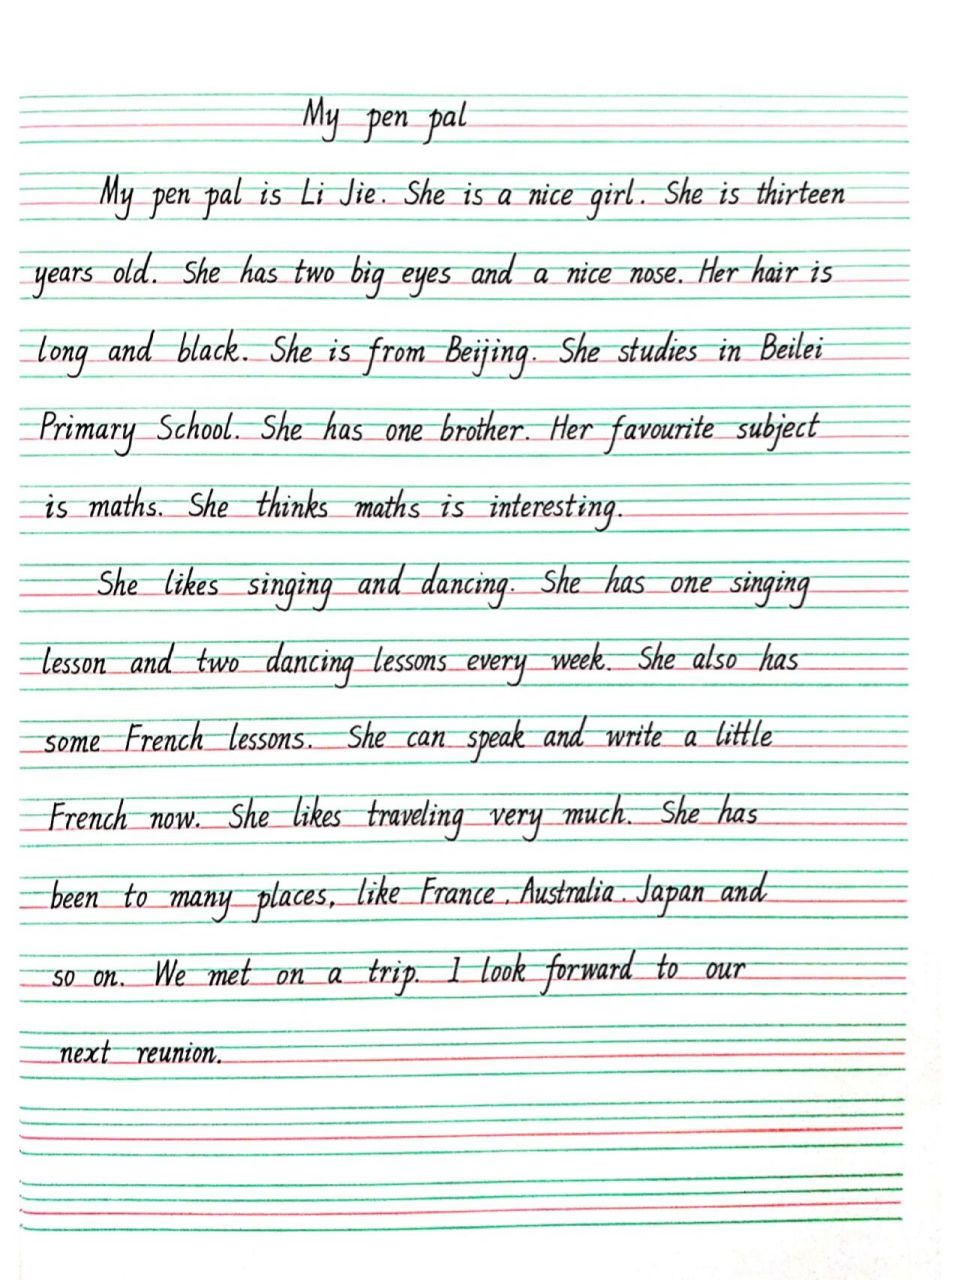 My pen pal
My pen pal is Li Jie. She is a nice girl. She is thirteen
years old. She has two big eyes and a nice nose. Her hair is
long and black. She is from Beijing. She studies in Beilei
Primary School. She has one brother. Her favourite subject
is maths. She thinks maths is interesting.
She likes singing and dancing. She has one singing
lesson and two dancing lessons every week. She also has
some French lessons. She can speak and write a little
French now. She likes traveling very much. She has
been to many places, like France, Australia. Japan and
so on. We met on a trip. I look forward to our
next reunion.